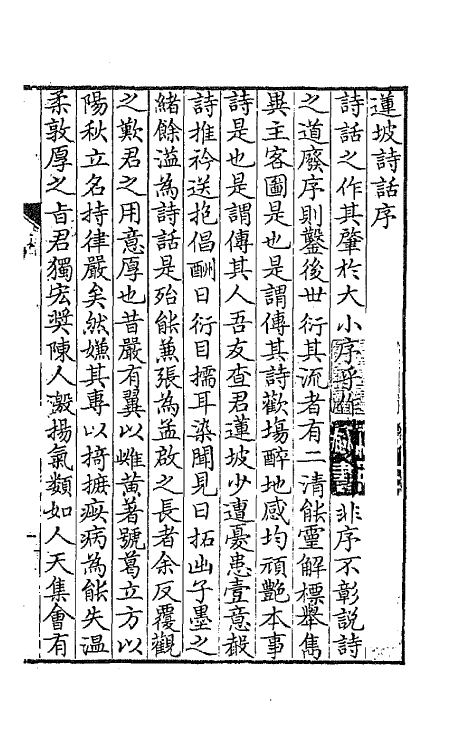 蓮坡詩話序
詩話之作其肇於大小序乎作非序不彰説詩
之道廢序則鑿後世衍其流者有二清能靈解標舉雋
異主客圖是也是謂傳其詩歡塲醉地感均頑艷本事
詩是也是謂傳其人吾友查君蓮坡少遭憂患壹意穀
詩推衿送抱倡酬日衍目擩耳染聞見日拓出子墨之
緒餘溢為詩話是殆能蕪張為孟啟之長者余反覆觀
之歎君之用意厚也昔嚴有翼以雌黄著號葛立方以
陽秋立名持律嚴矣然嫌其專以掎摭瘢病為能失温
柔敦厚之旨君獨宏奬陳人激揚氣類如人天集會有